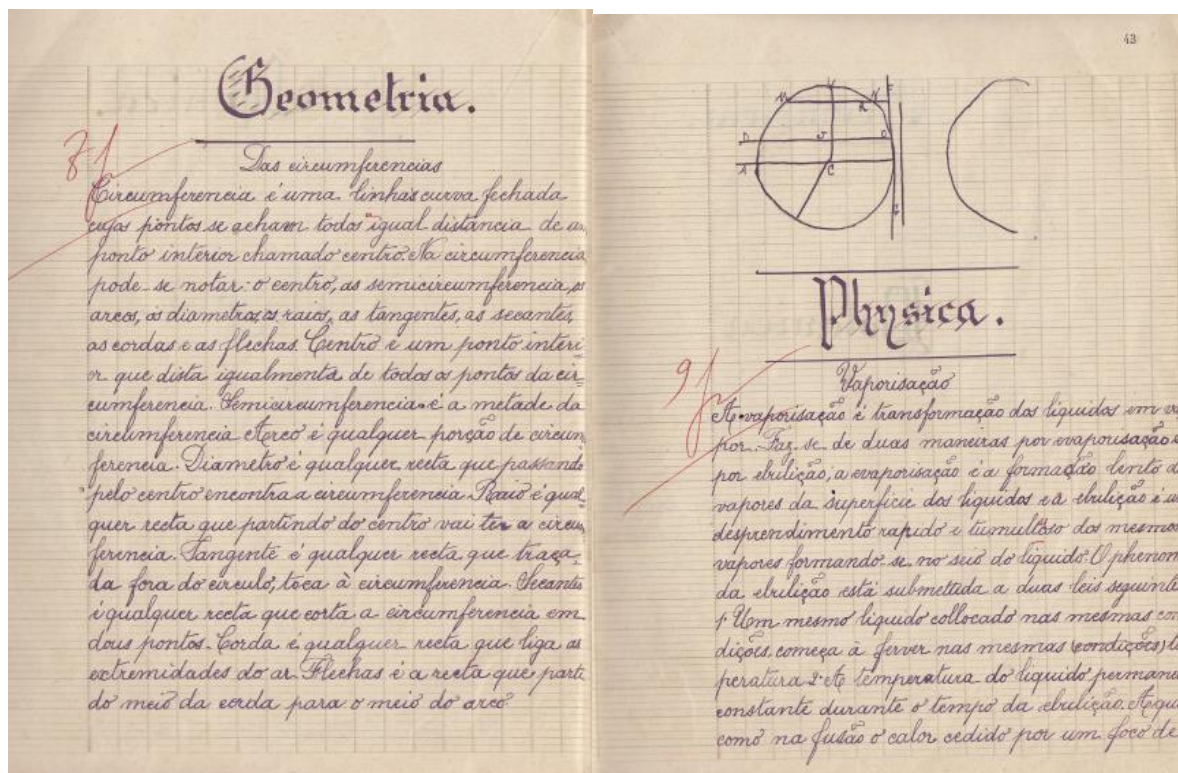 Geometria.
8
Das circumferencias
Circumferencia é uma linhas curva fechada
cujos pontos se acham todos igual distancia de um
ponto interior chamado centro. Na circumferencia
pode-se notar: o centro, as semicircumferencia, os
arcos, os diametros, os raios, as tangentes, as secantes,
as cordas e as flechas. Centro é um ponto interi-
or que dista igualmenta de todos os pontos da cir-
cumferencia. Semicircumferencia é a metade da
circumferencia Arco é qualquer porção de circum
ferencia. Diametro é qualquer recta que passando
pelo centro encontra a circumferencia. Raio é qual
quer recta que partindo do centro vai ter a circum
ferencia. Tangente é qualquer recta que traça-
da fora do circulo, toca á circumferencia. Secante
é qualquer recta que corta a circumferencia em
dous pontos. Corda é qualquer recta que liga as
extremidades do ar. Flechas é a recta que parte
do meio da corda para o meio do arco
43
Physica.
9
Vaporisação
A vaporisação é transformação dos liquidos em va
por. Faz-se de duas maneiras por evaporisação e
por ebulição, a evaporisação é a formação lento de
vapores da superficie dos liquidos e á ebulição é um
desprendimento rapido e tumultoso dos mesmos
vapores formando-se no suio do liquido. O phenom
da ebulição está submettida a duas leis seguinte
1ª Um mesmo liquido collocado nas mesmas con
dições, começa á ferver nas mesmas (condições) te
peratura 2ª A temperatura do liquido permane
constante durante o tempo da ebulição. Aqui
como na fusão o calor cedido por um foco de